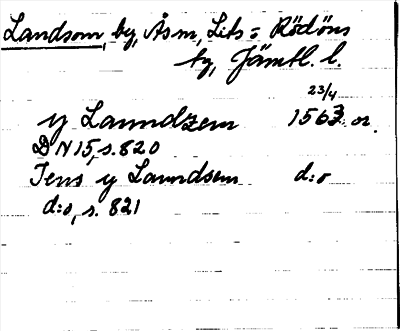 Landsom, by, Ås sn, Lits o Rödöns
tg, Jämtl. l.
23/4
y Lanndzem 1563 or.
DN15, s. 820
Jens y Lanndsem d:o
d:o, s. 821